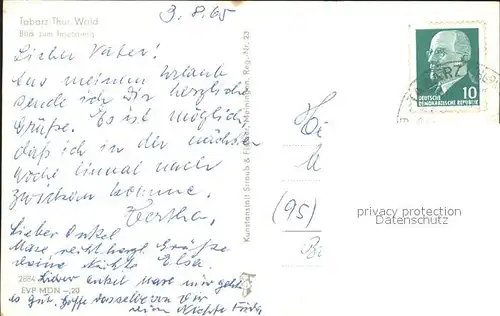 Tabarz Thür. Wald
Blick zum Inselsberg
3.8.65
Lieber Vater!
Aus meinem Urlaub
sende ich Dir herzliche
Grüße. Es ist möglich,
daß ich in der nächsten
Woche einmal nach
Zwickau komme.
Hertha.
Lieber Onkel
herzl. Grüße
Nichte Elsa.
Lieber Onkel mir geht
es gut. Hoffe dasselbe von Dir
Nichte
2884
EVP MDN -,20
Kunstanstalt Straub & Fischer, Meiningen, Reg.-Nr. 23
(95)
DEUTSCHE
DEMOKRATISCHE REPUBLIK
10
privacy protection
Datenschutz